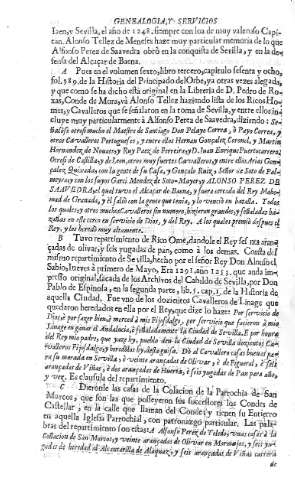 GENEALOGIA, Y SERVICIOS
Iaen, y Sevilla, el año de 1248. siempre con los de muy valeroso Capi-
tan. Alonso Tellez de Meneses haze muy particular memoria de lo que
Alfonso Perez de Saavedra obró en la conquista de Sevilla, y en la de-
fensa del Alcaçar de Baena.
A Pues en el volumen sexto, libro tercero, capitulo sesenta y ocho,
fol. 989. de la Historia del Principado del Orbe, ya otras vezes alegada,
y que como se ha dicho está original en la Libreria de D. Pedro de Ro-
xas, Conde de Mora, vá Alfonso Tellez haziendo lista de los Ricos Hom-
mes, y Cavalleros que se señalaron en la toma de Sevilla, y entre ellos in-
cluye muy particularmente à Alfonso Perez de Saavedra, diziendo: Se-
ñalòse otrosi mucho el Maestre de Santiago Don Pelayo Correa, ò Payo Correa, y
otros Cavalleros Portugueses, y entre ellos Hernan Gonçalez Coronel, y Martin
Hernandez de Novaes, y Ruy Paez de Pereyra, y D. Iuan Enriquez Portocarrero,
Otrosi de Castilla, y de Leon, otros muy fuertes Cavalleros, y entre ellos Arias Gon-
çalez Quixada, con la gente de su Casa, y Gonçalo Ruiz, Señor de Soto de Pal-
meyra, con los suyos Garci Mendez de Soto-Mayor, y ALONSO PEREZ DE
SAAVEDRA, el qual tuvo el Alcaçar de Baena, y fuera cercado del Rey Maho-
mad de Granada, y H salió con la gente que tenia, y lo venció en batalla. Todos
los quales, y otros muchos Cavalleros sin numero, hizieron grandes, y señaladas ha-
zañas en este cerco en servicio de Dios, y del Rey. A los quales premiò despues el
Rey, y los heredó muy altamente.
B Tuvo repartimiento de Rico Ome, dandole el Rey sesenta arança-
das de olivar, y seis yugadas de pan, como à los demas. Consta del
mismo repartimiento de Sevilla, hecho por el señor Rey Don Alonso el
Sabio, Iueves à primero de Mayo, Era 1291. año 1253. que anda im-
presso original, sacada de los Archivos del Cabildo de Sevilla, por Don
Pablo de Espinola, en la segunda parte, lib. 5. cap. 1. de la Historia de
aquella Ciudad. Fue uno de los dozientos Cavalleros de Linage que
quedaron heredados en ella por el Rey, que dize lo hazer Por servicio de
Dios, è por fazer bien, è merced à mis Fijosdalgo, por servicio que ficieron à mio
Linage en ganar el Andalucia, è señaladamente la Ciudad de Sevilla. E por honra
del Rey mio padre, que yaze hy, pueblo della la Ciudad de Sevilla dozientos Ca-
valleros Fijosdalgo, y heredélos
en Sevilla, è veinte arançadas de Olivar, è de Figueral, è seis
arançadas de Viñas, è dos arançadas de Huerta, è seis yugadas de Pan para año,
y vez. Es clausula del repartimiento.
C Dieronle las casas de la Colacion de la Parrochia de San
Marcos, que son las que posseyeron sus successores los Condes de
Castellar, en la calle que llaman del Conde; y tienen su Entierro
en aquella Iglesia Parrochial, con patronazgo particular. Las pala-
bras del repartimiento son estas: A Alfonso Perez de Toledo, unas casas à la
Collacion de San Marcos, y veinte arançadas de Olivar en , y seis yu-
gadas de heredad al Alcantarilla de , y seis arançadas de Viñas carrera
de